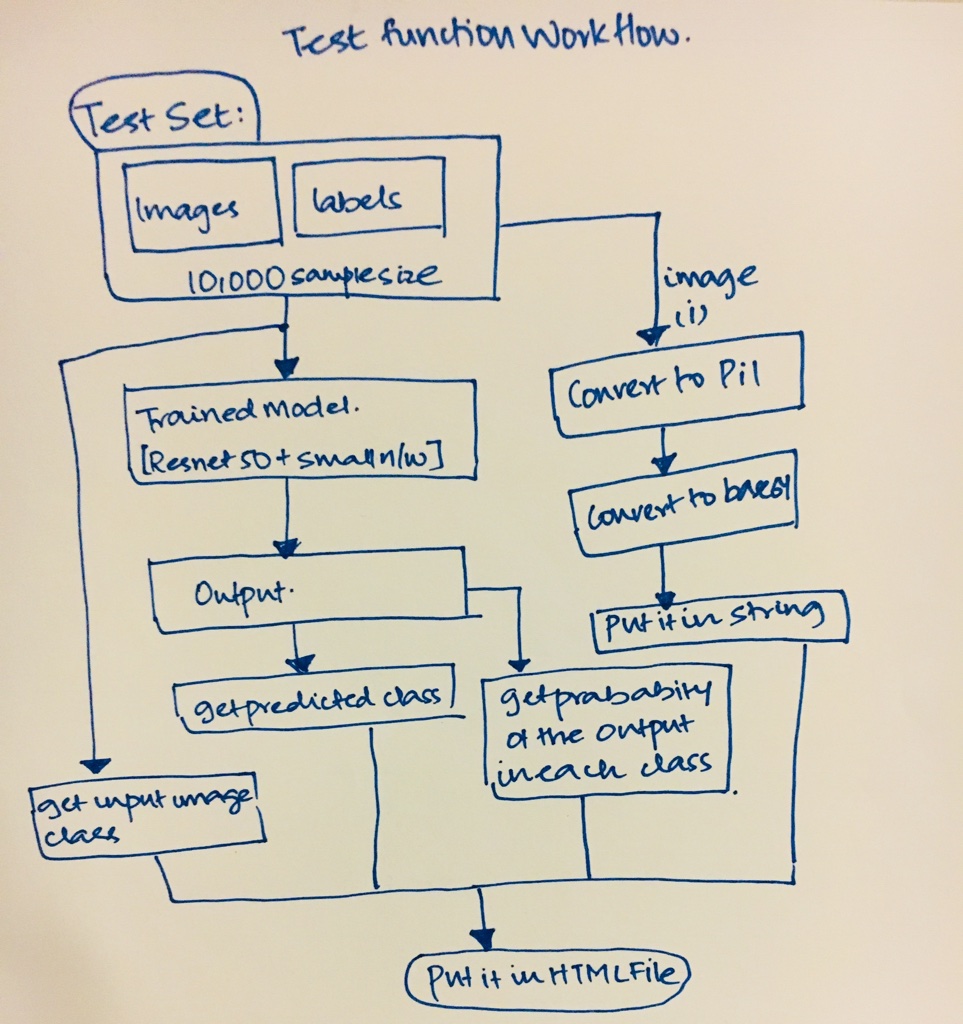 Test function Workflow.
Test Set:
Images
labels
10,000 sample size
image
(i)
Convert to Pil
Trained Model.
[Resnet 50 + small n/w]
Convert to base64
Output.
Put it in string
get predicted class
get prababity
of the output
in each class
get input image
class
Put it in HTML File